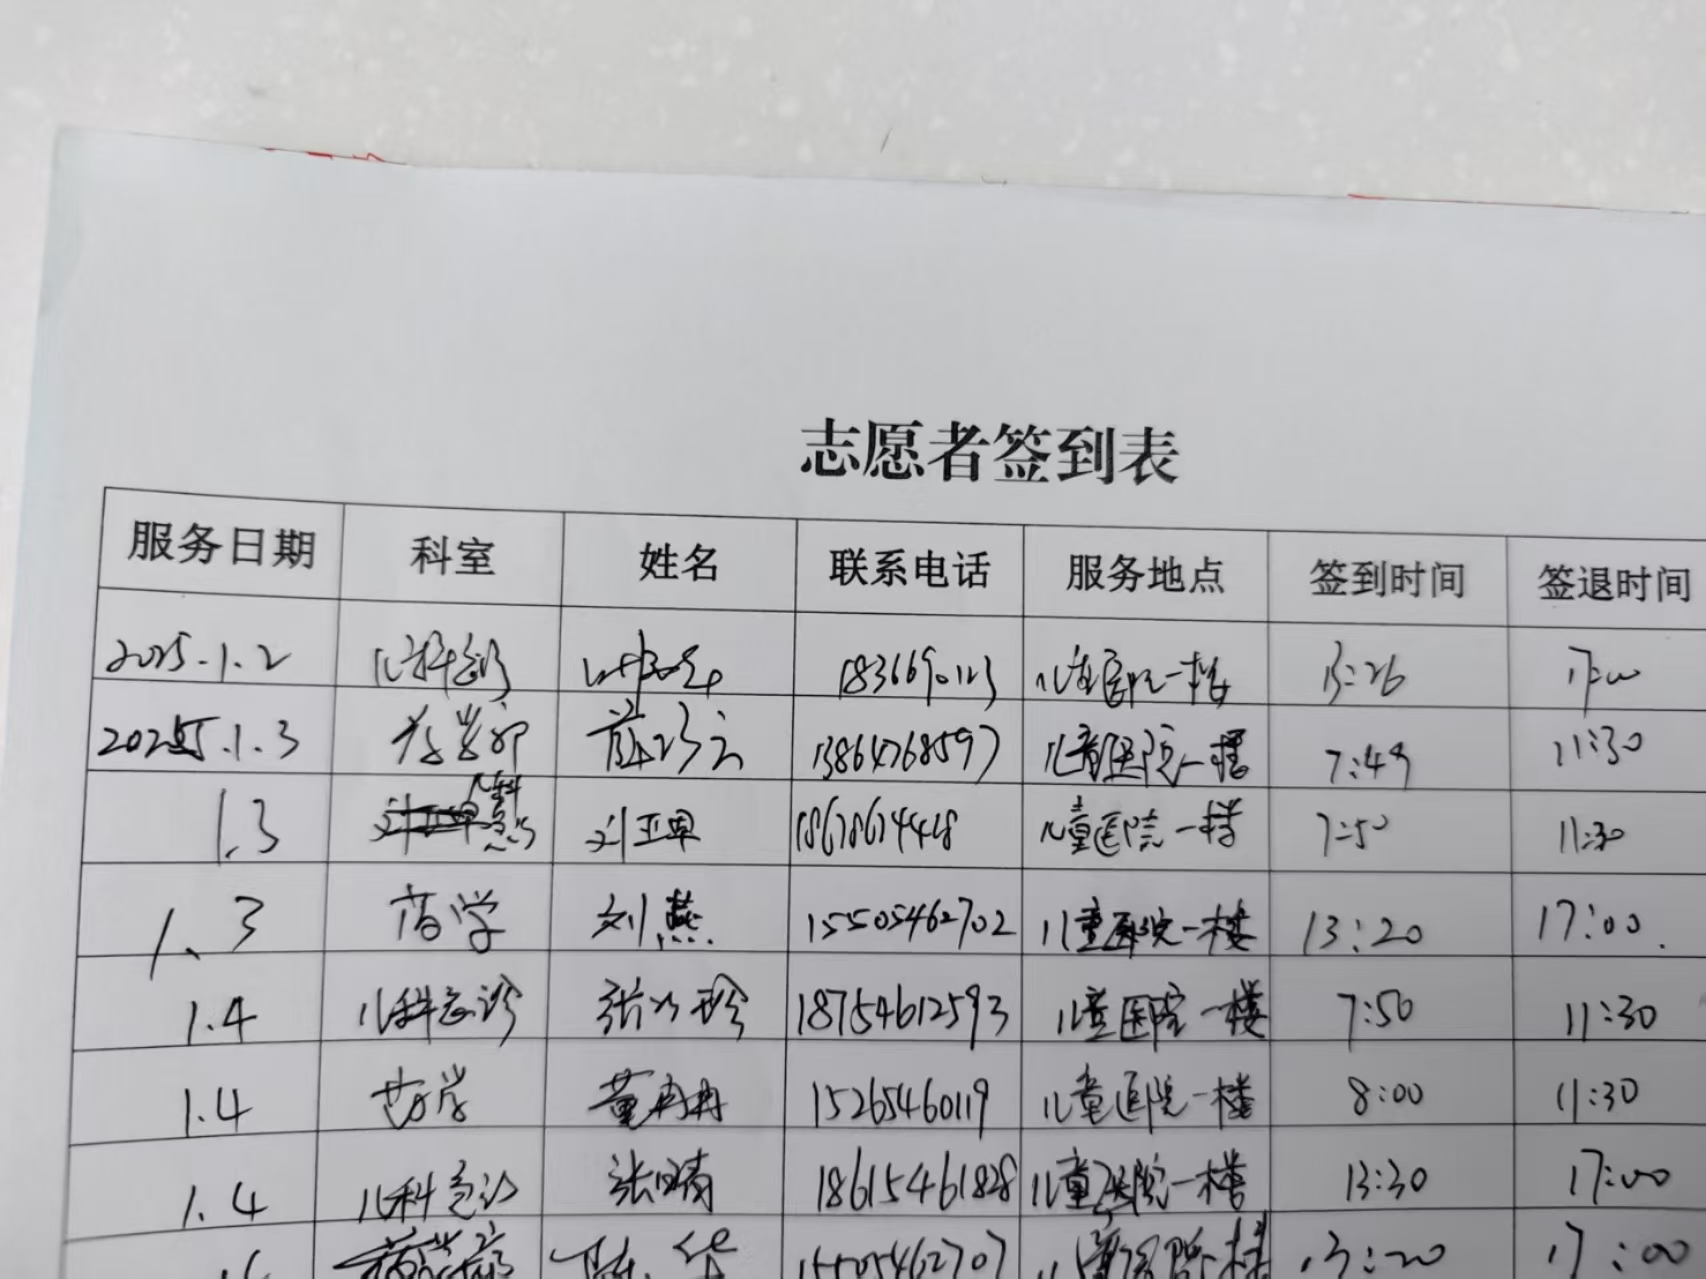 志愿者签到表
服务日期 科室 姓名 联系电话 服务地点 签到时间 签退时间
2025.1.2 儿科急诊 儿童医院一楼 13:26 17:00
2025.1.3 药学部 13864768597 儿童医院一楼 7:49 11:30
1.3 儿科急诊 刘亚卓 18678674448 儿童医院一楼 7:50 11:30
1.3 药学 刘燕 15505462702 儿童医院一楼 13:20 17:00
1.4 儿科急诊 张珍 18754612593 儿童医院一楼 7:50 11:30
1.4 药学 董冉冉 15265460119 儿童医院一楼 8:00 11:30
1.4 儿科急诊 张晴 18615461828 儿童医院一楼 13:30 17:00
华 15505462707 儿童医院一楼 13:20 17:00